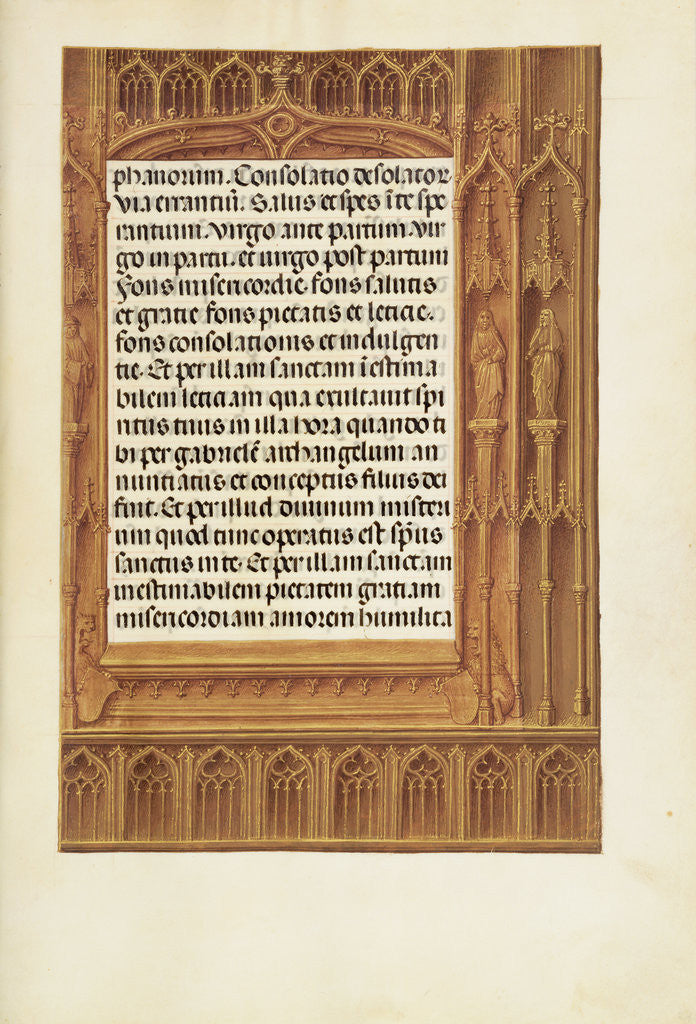 phanorum. Consolatio desolator
via errantiū. Salus et spes ī te spe
rantium. Virgo ante partum vir
go in partu. et virgo post partum
Fons misericordie. fons salutis
et gratie fons pietatis et leticie.
fons consolationis et indulgen
tie. Et per illam sanctam īestima
bilem leticiam qua exultavit spi
ritus tuus in illa hora quando ti
bi per gabrielē archangelum an
nuntiatus et conceptus filius dei
fuit. Et per illud divinum misteri
um quod tunc operatus est sp̄us
sanctus in te. Et per illam sanctam
inestimabilem pietatem gratiam
misericordiam amorem humilita